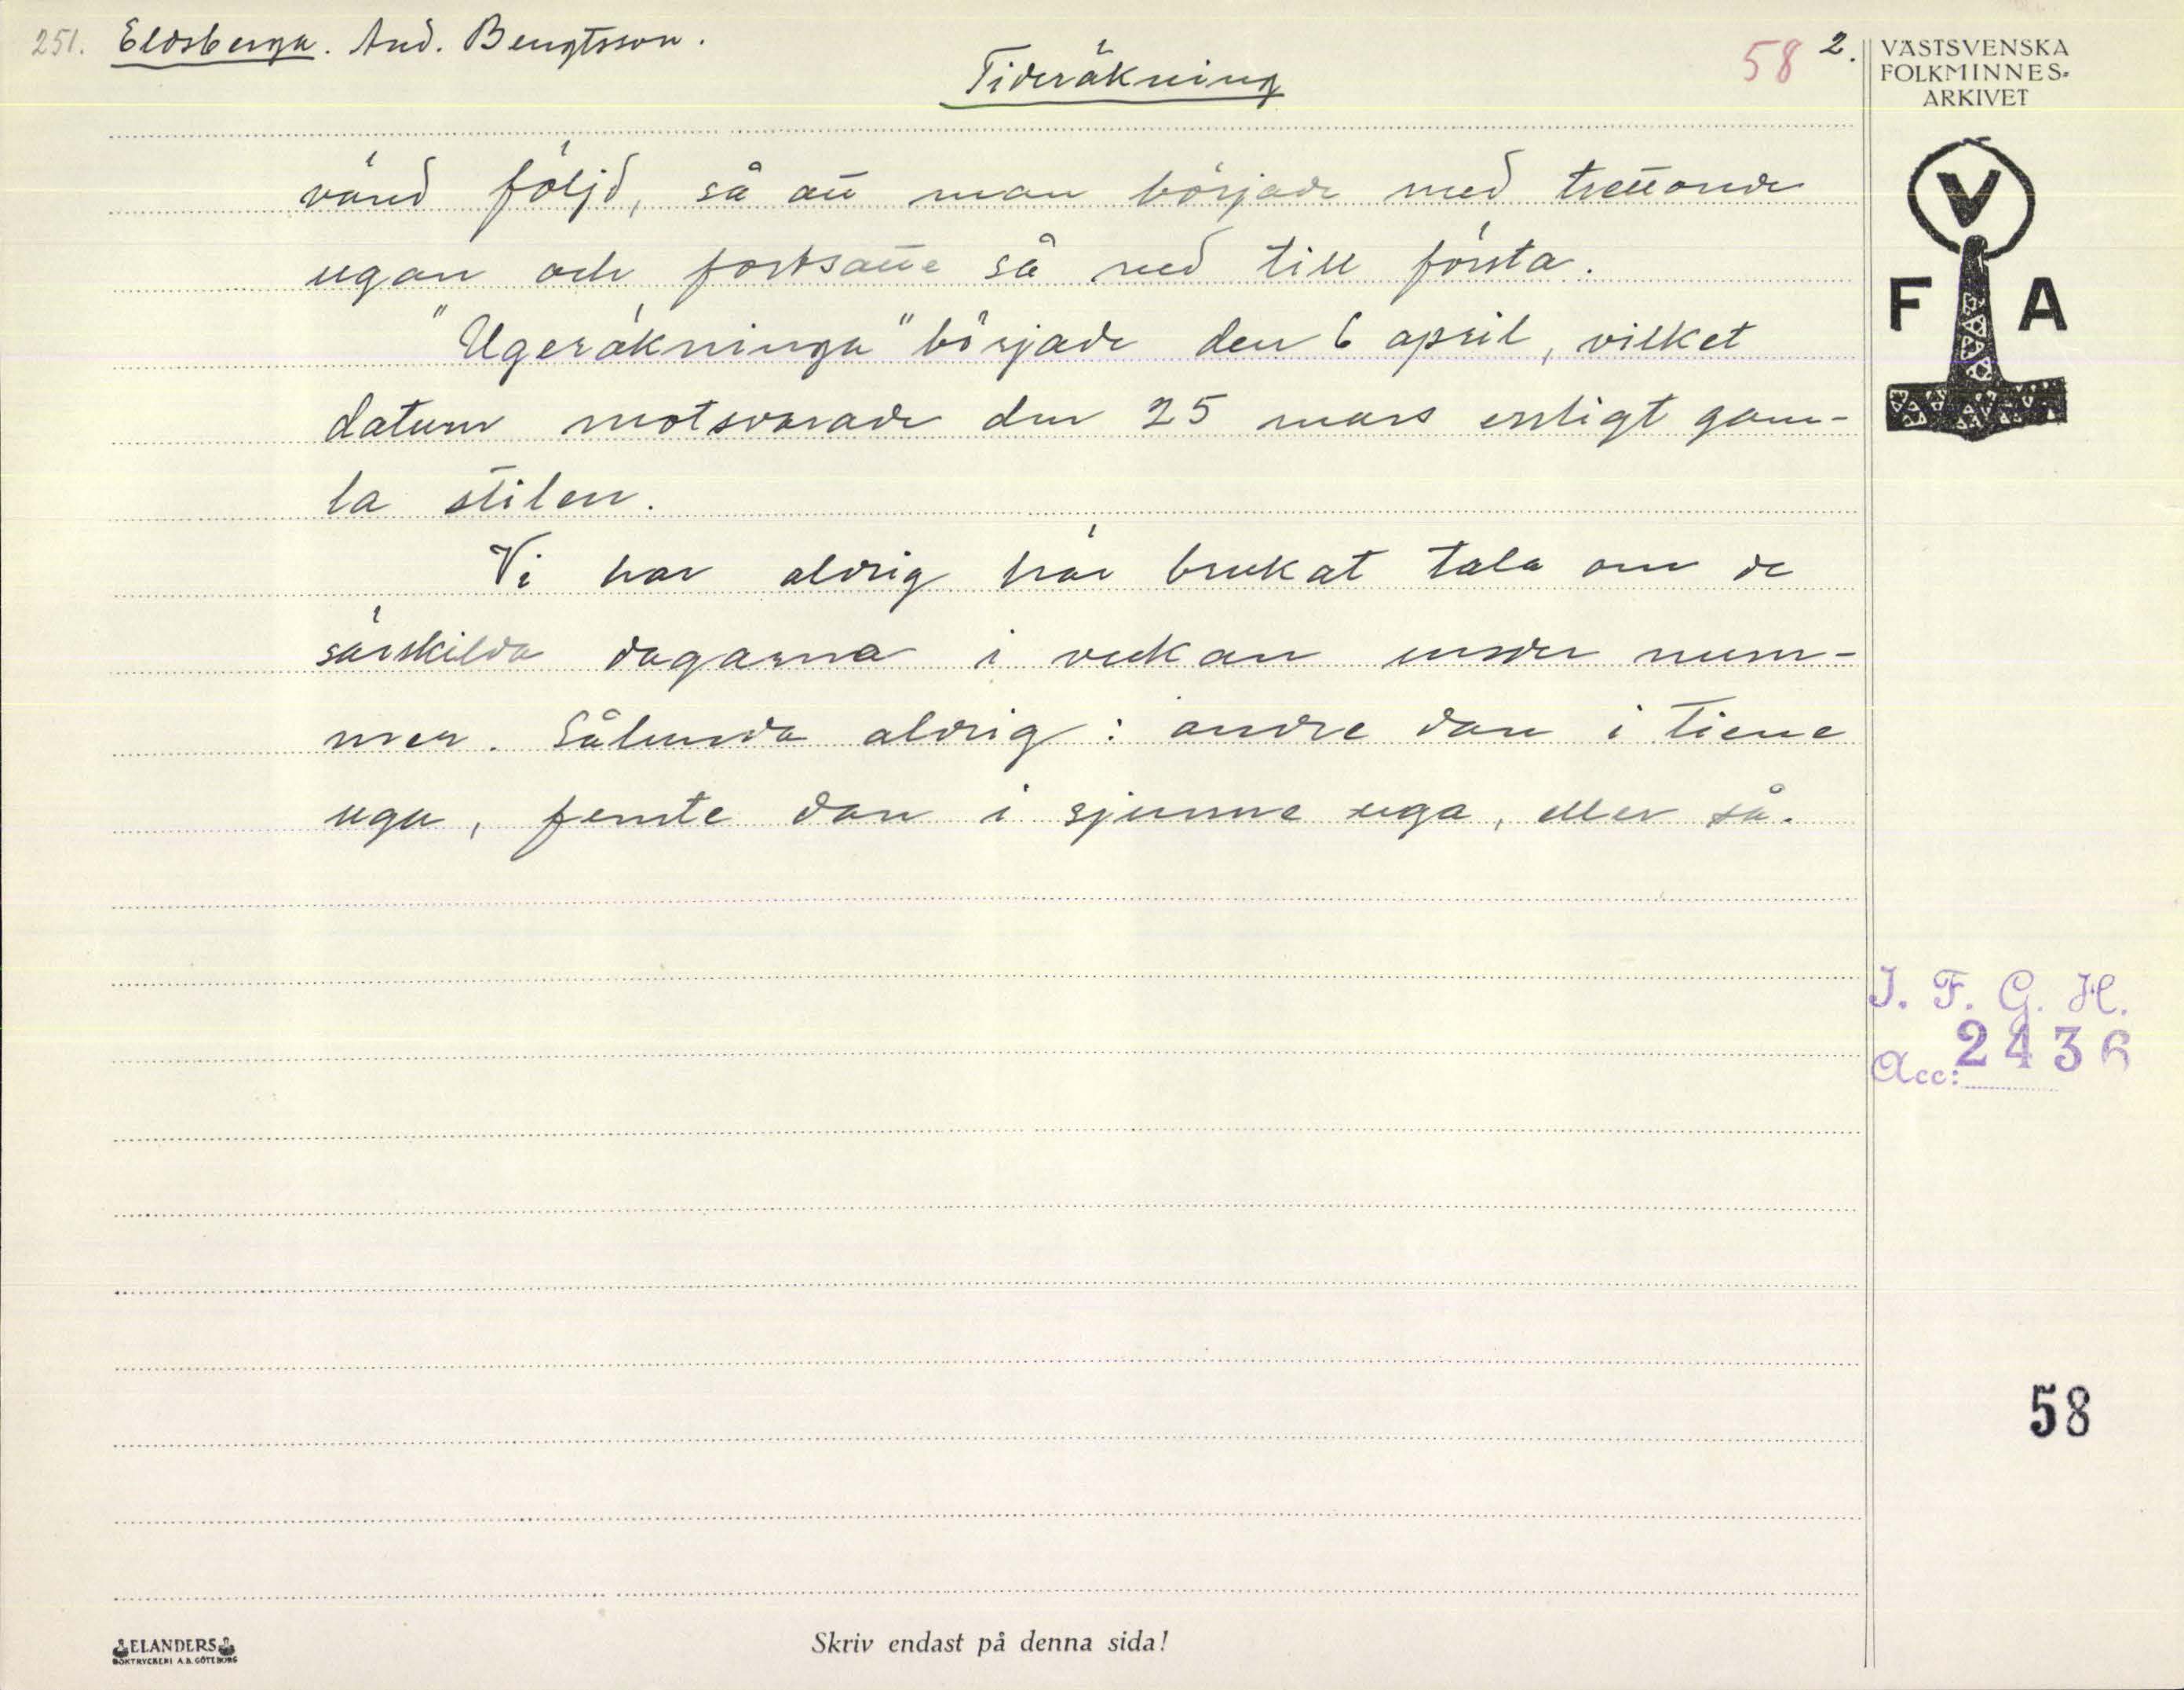 251. Eldsberga. And. Bengtsson.
58 2.
Tideräkning
VÄSTSVENSKA
FOLKMINNES-
ARKIVET
vänd följd, så att man började med trettonde
ugan och fortsatte så ned till första.
"Ugeräkninga" började den 6 april, vilket
datum motsvarade den 25 mars enligt gam-
la stilen.
Vi har aldrig här brukat tala om de
särskilda dagarna i veckan under num-
mer. Sålunda aldrig: andre dan i tiene
uga, femte dan i sjunne uga, eller så.
V
F A
I. F. G. H.
Acc: 2436
58
ELANDERS
BOKTRYCKERI A.B. GÖTEBORG
Skriv endast på denna sida!